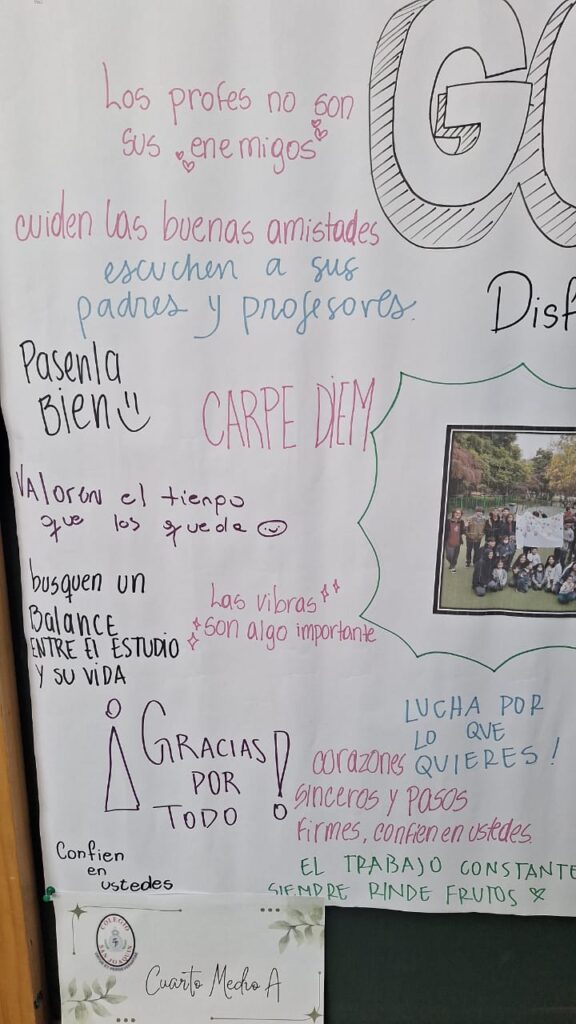 Los profes no son
sus enemigos
cuiden las buenas amistades
escuchen a sus
padres y profesores.
Pasenla
Bien
CARPE DIEM
VAloren el tienpo
que los queda
busquen un
Balance
ENTRE El ESTUDIO
Y SU VIDA
Las vibras
son algo importante
¡GRACIAS
POR
TODO!
LUCHA POR
LO QUE
QUIERES!
corazones
sinceros y pasos
firmes, confien en ustedes.
Confien
en
ustedes
EL TRABAJO CONSTANTE
SIEMPRE RINDE FRUTOS
G
Disf
COLEGIO
SAN JOAQUIN
Cuarto Medio A